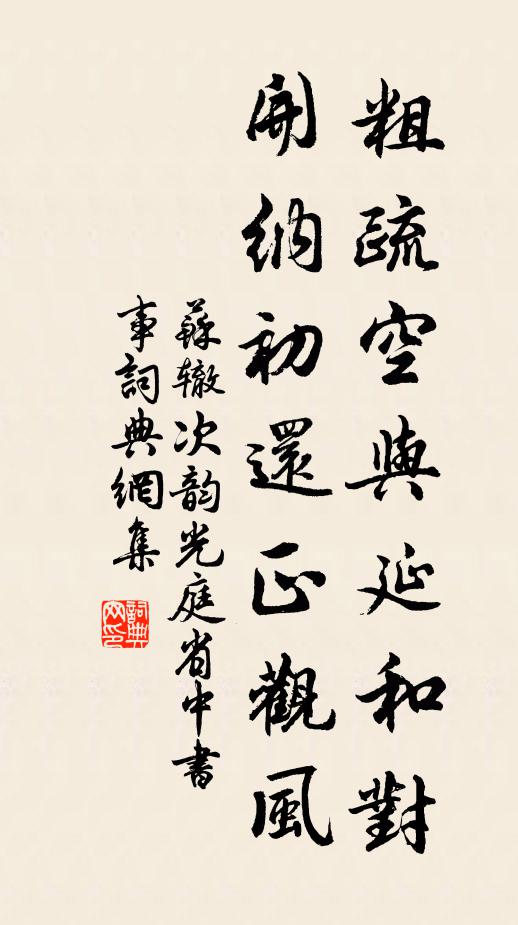 粗疏空與延和對
開納初還正觀風
蘇辙次韵光庭省中書
事詞典網集
詞典网印